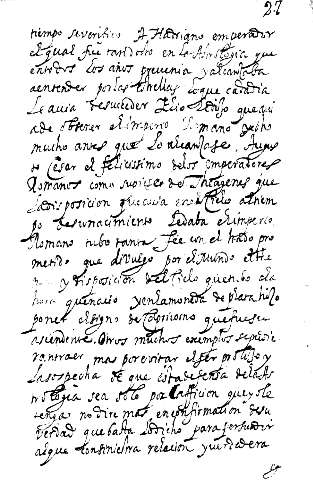 27
tiempo se verifico A Hadriano emperador
el qual fue tan docto en la Astrologia que
entodos los años prevenia y alcançaba
a entender por las estrellas lo que cada dia
le avia de suceder Elio
a de obtener el imperio Romano dixo
mucho antes que lo alcançase, Augus
to Cesar el felicissimo delos emperadores
Romanos como supiese de Theagenes que
la disposicion que avia en el Cielo al tiem
po de su nacimiento le daba el imperio
Romano tubo tanta fee con el hado pro
metido que divulgo por el Mundo el the
ma y disposicion del Cielo que ubo ala
hora que nacio y en la moneda de plata hizo
poner el signo de Capricornio que fue su
ascendente. Otros muchos exemplos se pudie
ran traer mas por evitar el ser molesto y
la sospecha de que esta defensa de la As
trologia sea solo por la aficion que yo le
tengo no dire mas en confirmacion de su
verdad que basta lo dicho para persuadir
a que con siniestra relacion y verdadera